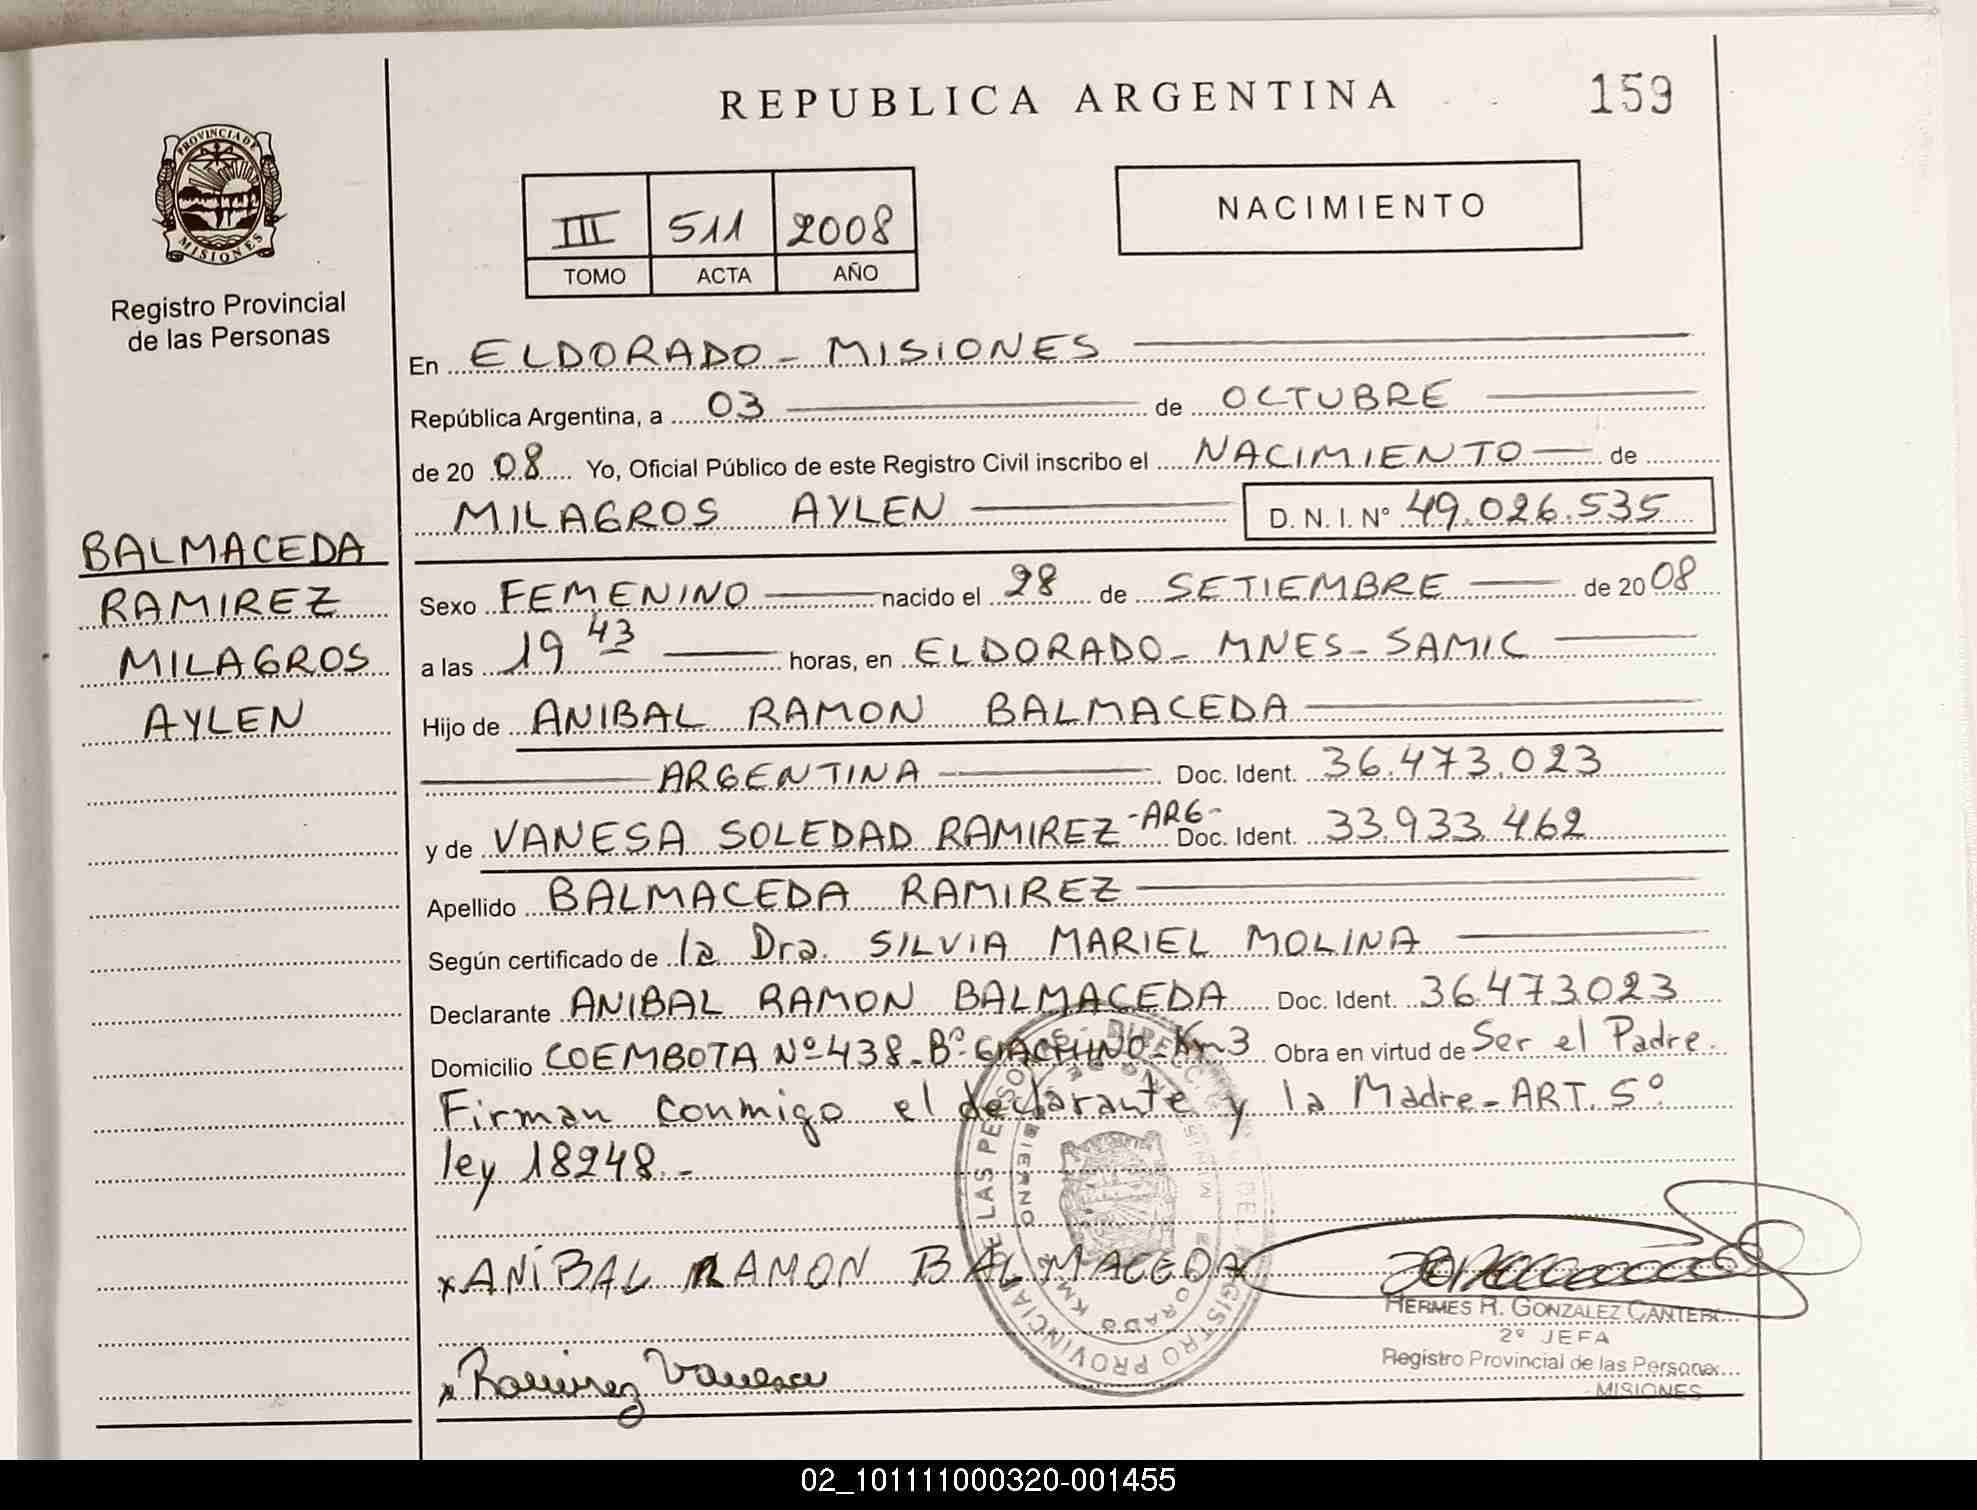 REPUBLICA ARGENTINA
159
PROVINCIA DE MISIONES
Registro Provincial
de las Personas
III 511 2008
TOMO ACTA AÑO
NACIMIENTO
BALMACEDA
RAMIREZ
MILAGROS
AYLEN
En ELDORADO - MISIONES
República Argentina, a 03 de OCTUBRE
de 20 08 Yo, Oficial Público de este Registro Civil inscribo el NACIMIENTO de
MILAGROS AYLEN D. N. I. Nº 49.026.535
Sexo FEMENINO nacido el 28 de SETIEMBRE de 20 08
a las 19 43 horas, en ELDORADO - MNES - SAMIC
Hijo de ANIBAL RAMON BALMACEDA
ARGENTINA Doc. Ident. 36.473.023
y de VANESA SOLEDAD RAMIREZ -ARG- Doc. Ident. 33.933.462
Apellido BALMACEDA RAMIREZ
Según certificado de la Dra. SILVIA MARIEL MOLINA
Declarante ANIBAL RAMON BALMACEDA Doc. Ident. 36.473.023
Domicilio COEMBOTA Nº 438 - Bº GIACHINO - Km 3 Obra en virtud de Ser el Padre.
Firman conmigo el declarante y la Madre - ART. 5º
ley 18248.-
x ANIBAL RAMON BALMACEDA
HERMES R. GONZALEZ CANTERO
2º JEFA
Registro Provincial de las Personas
MISIONES
x Ramirez Vanesa
02_101111000320-001455